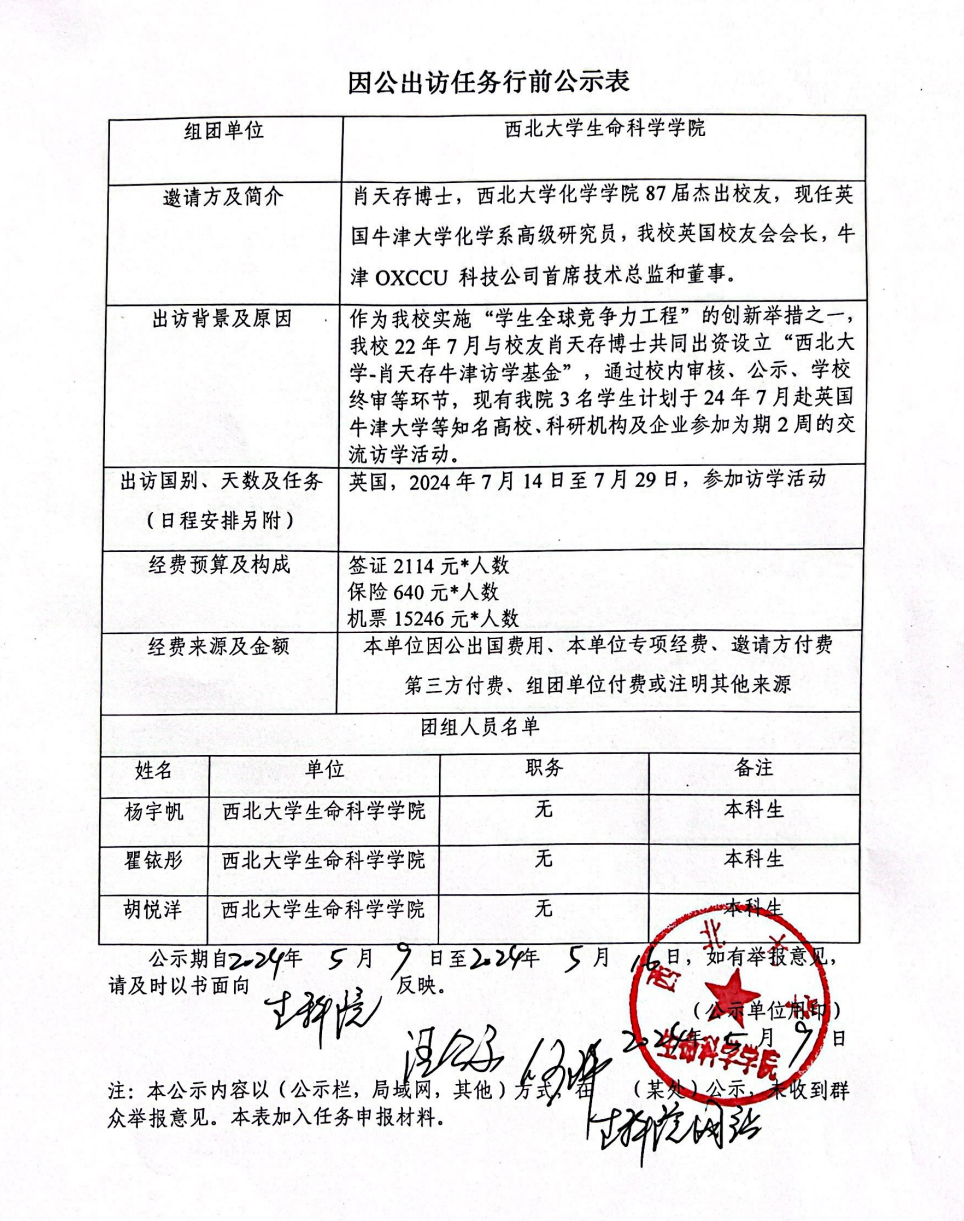 因公出访任务行前公示表
组团单位
西北大学生命科学学院
邀请方及简介
肖天存博士，西北大学化学学院 87 届杰出校友，现任英
国牛津大学化学系高级研究员，我校英国校友会会长，牛
津 OXCCU 科技公司首席技术总监和董事。
出访背景及原因
作为我校实施“学生全球竞争力工程”的创新举措之一，
我校 22 年 7 月与校友肖天存博士共同出资设立“西北大
学-肖天存牛津访学基金”，通过校内审核、公示、学校
终审等环节，现有我院 3 名学生计划于 24 年 7 月赴英国
牛津大学等知名高校、科研机构及企业参加为期 2 周的交
流访学活动。
出访国别、天数及任务
（日程安排另附）
英国，2024 年 7 月 14 日至 7 月 29 日，参加访学活动
经费预算及构成
签证 2114 元*人数
保险 640 元*人数
机票 15246 元*人数
经费来源及金额
本单位因公出国费用、本单位专项经费、邀请方付费
第三方付费、组团单位付费或注明其他来源
团组人员名单
姓名 单位 职务 备注
杨宇帆 西北大学生命科学学院 无 本科生
瞿铱彤 西北大学生命科学学院 无 本科生
胡悦洋 西北大学生命科学学院 无 本科生
公示期自2024年 5 月 9 日至2024年 5 月 16 日，如有举报意见，
请及时以书面向 生科院 反映。
（公示单位用印）
2024年 5 月 9 日
西北大学
注：本公示内容以（公示栏，局域网，其他）方式，在 （某处）公示，未收到群
生科院网站
众举报意见。本表加入任务申报材料。